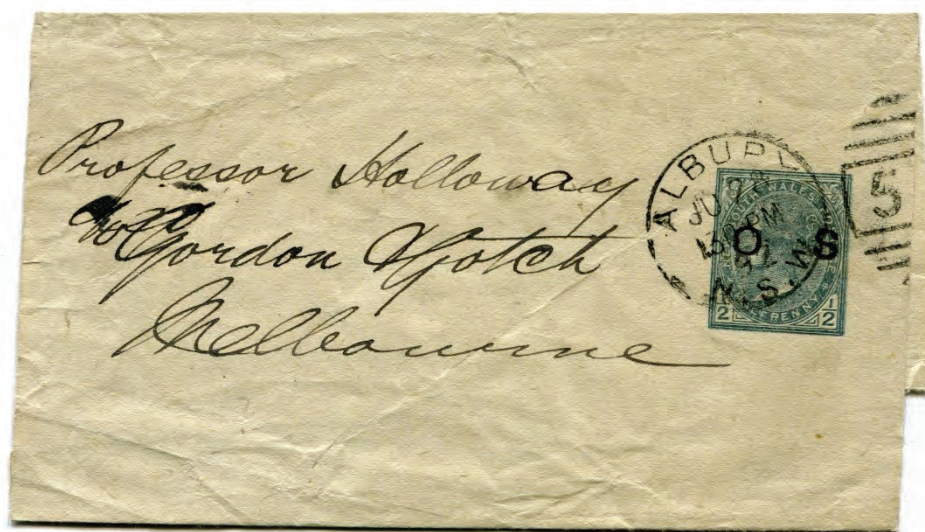 Professor Holloway
Gordon & Gotch
Melbourne
ALBURY
JU 28
PM
N.S.W
SOUTH WALES
O S
1/2 HALFPENNY 1/2
5